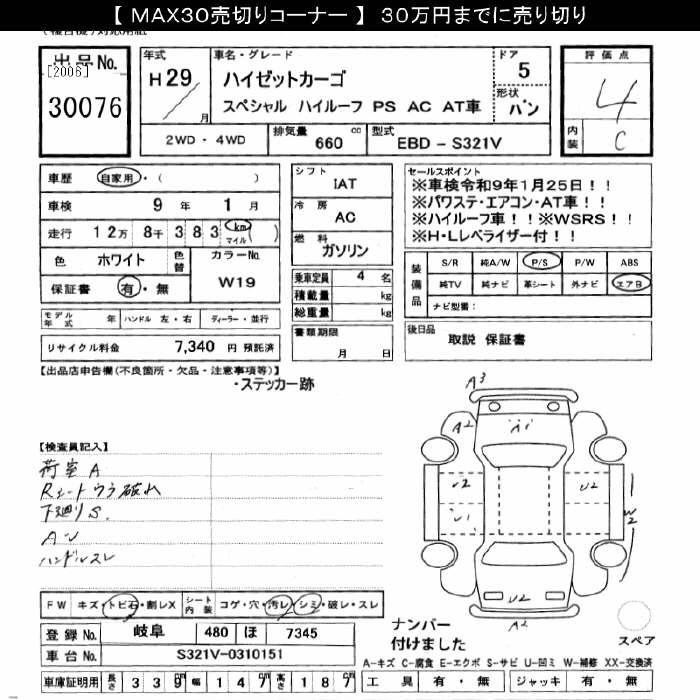 【 MAX30売切りコーナー 】 30万円までに売り切り
出品No.
[2006]
30076
年式
H29
月
車名・グレード
ハイゼットカーゴ
スペシャル ハイルーフ PS AC AT車
ドア
5
形状
バン
評価点
4
内装
C
2WD・4WD
排気量 660 cc
型式 EBD-S321V
車歴 自家用・( )
車検 9年 1月
走行 12万 8千 383 km マイル ( )
色 ホワイト 色替
カラーNo. W19
保証書 有・無
シフト
IAT
冷房
AC
燃料
ガソリン
乗車定員 4 名
積載量 kg
総重量 kg
セールスポイント
※車検令和9年1月25日!!
※パワステ・エアコン・AT車!!
※ハイルーフ車!!※WSRS!!
※H・Lレベライザー付!!
装備品
S/R 純A/W P/S P/W ABS
純TV 純ナビ 革シート 外ナビ エアB
ナビ型番:
モデル年式 年 ハンドル 左・右 ディーラー・並行
リサイクル料金 7,340 円 預託済
書類期限
月 日
後日品
取説 保証書
【出品店申告欄(不良箇所・欠品・注意事項等)】
・ステッカー跡
【検査員記入】
荷室 A
Rシートウラ破れ
下廻り S.
A-U
ハンドルスレ
A3
A2
A1
A2
U2
U2
U1
W2
U2
A2
FW キズ・トビ石・割レX
シート内装 コゲ・穴・汚レ・シミ・破レ・スレ
登録No. 岐阜 480 ほ 7345
車台No. S321V-0310151
ナンバー
付けました
スペア
A-キズ C-腐食 E-エクボ S-サビ U-凹ミ W-補修 XX-交換済
車庫証明用 長さ 339 幅 147 高さ 187
工具 有・無 ジャッキ 有・無